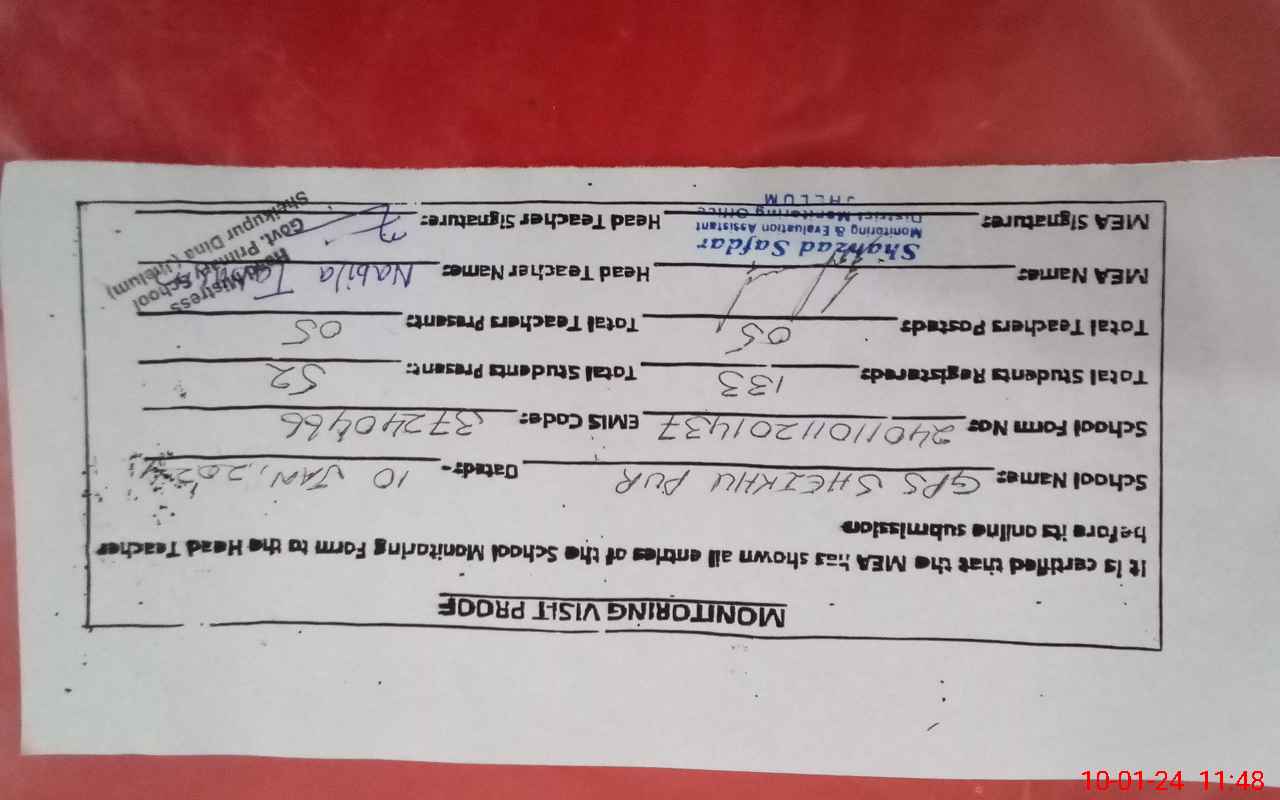 MONITORING VISIT PROOF
It is certified that the MEA has shown all entries of the School Monitoring Form to the Head Teacher
before its online submission
School Name: GPS SHEIKHU PUR Dated:- 10 JAN, 2024
School Form No: 2401101120 1437 EMIS Code: 37240466
Total Students Registered: 133 Total Students Present: 52
Total Teachers Posted: 05 Total Teachers Present: 05
MEA Name: Head Teacher Name: Nabila
Shahzad Safdar
Monitoring & Evaluation Assistant
District Monitoring Office
JHELUM
MEA Signature: Head Teacher Signature:
Head Mistress
Govt. Primary School
Sheikupur Dina (Jhelum)
10-01-24 11:48